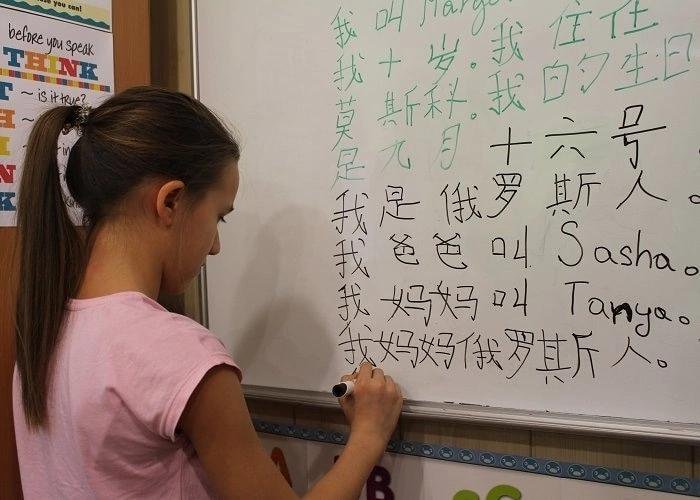 you can!
before you speak
THINK
T ~ is it true?
H
I
N
K
我 叫 Marga
我 十 岁。我 住在
莫 斯科。我 白勺生日
是 九 月 十六号
我是 俄罗斯人。
我 爸爸 叫 Sasha。
我 妈妈 叫 Tanya。
我妈妈俄罗其斤人。